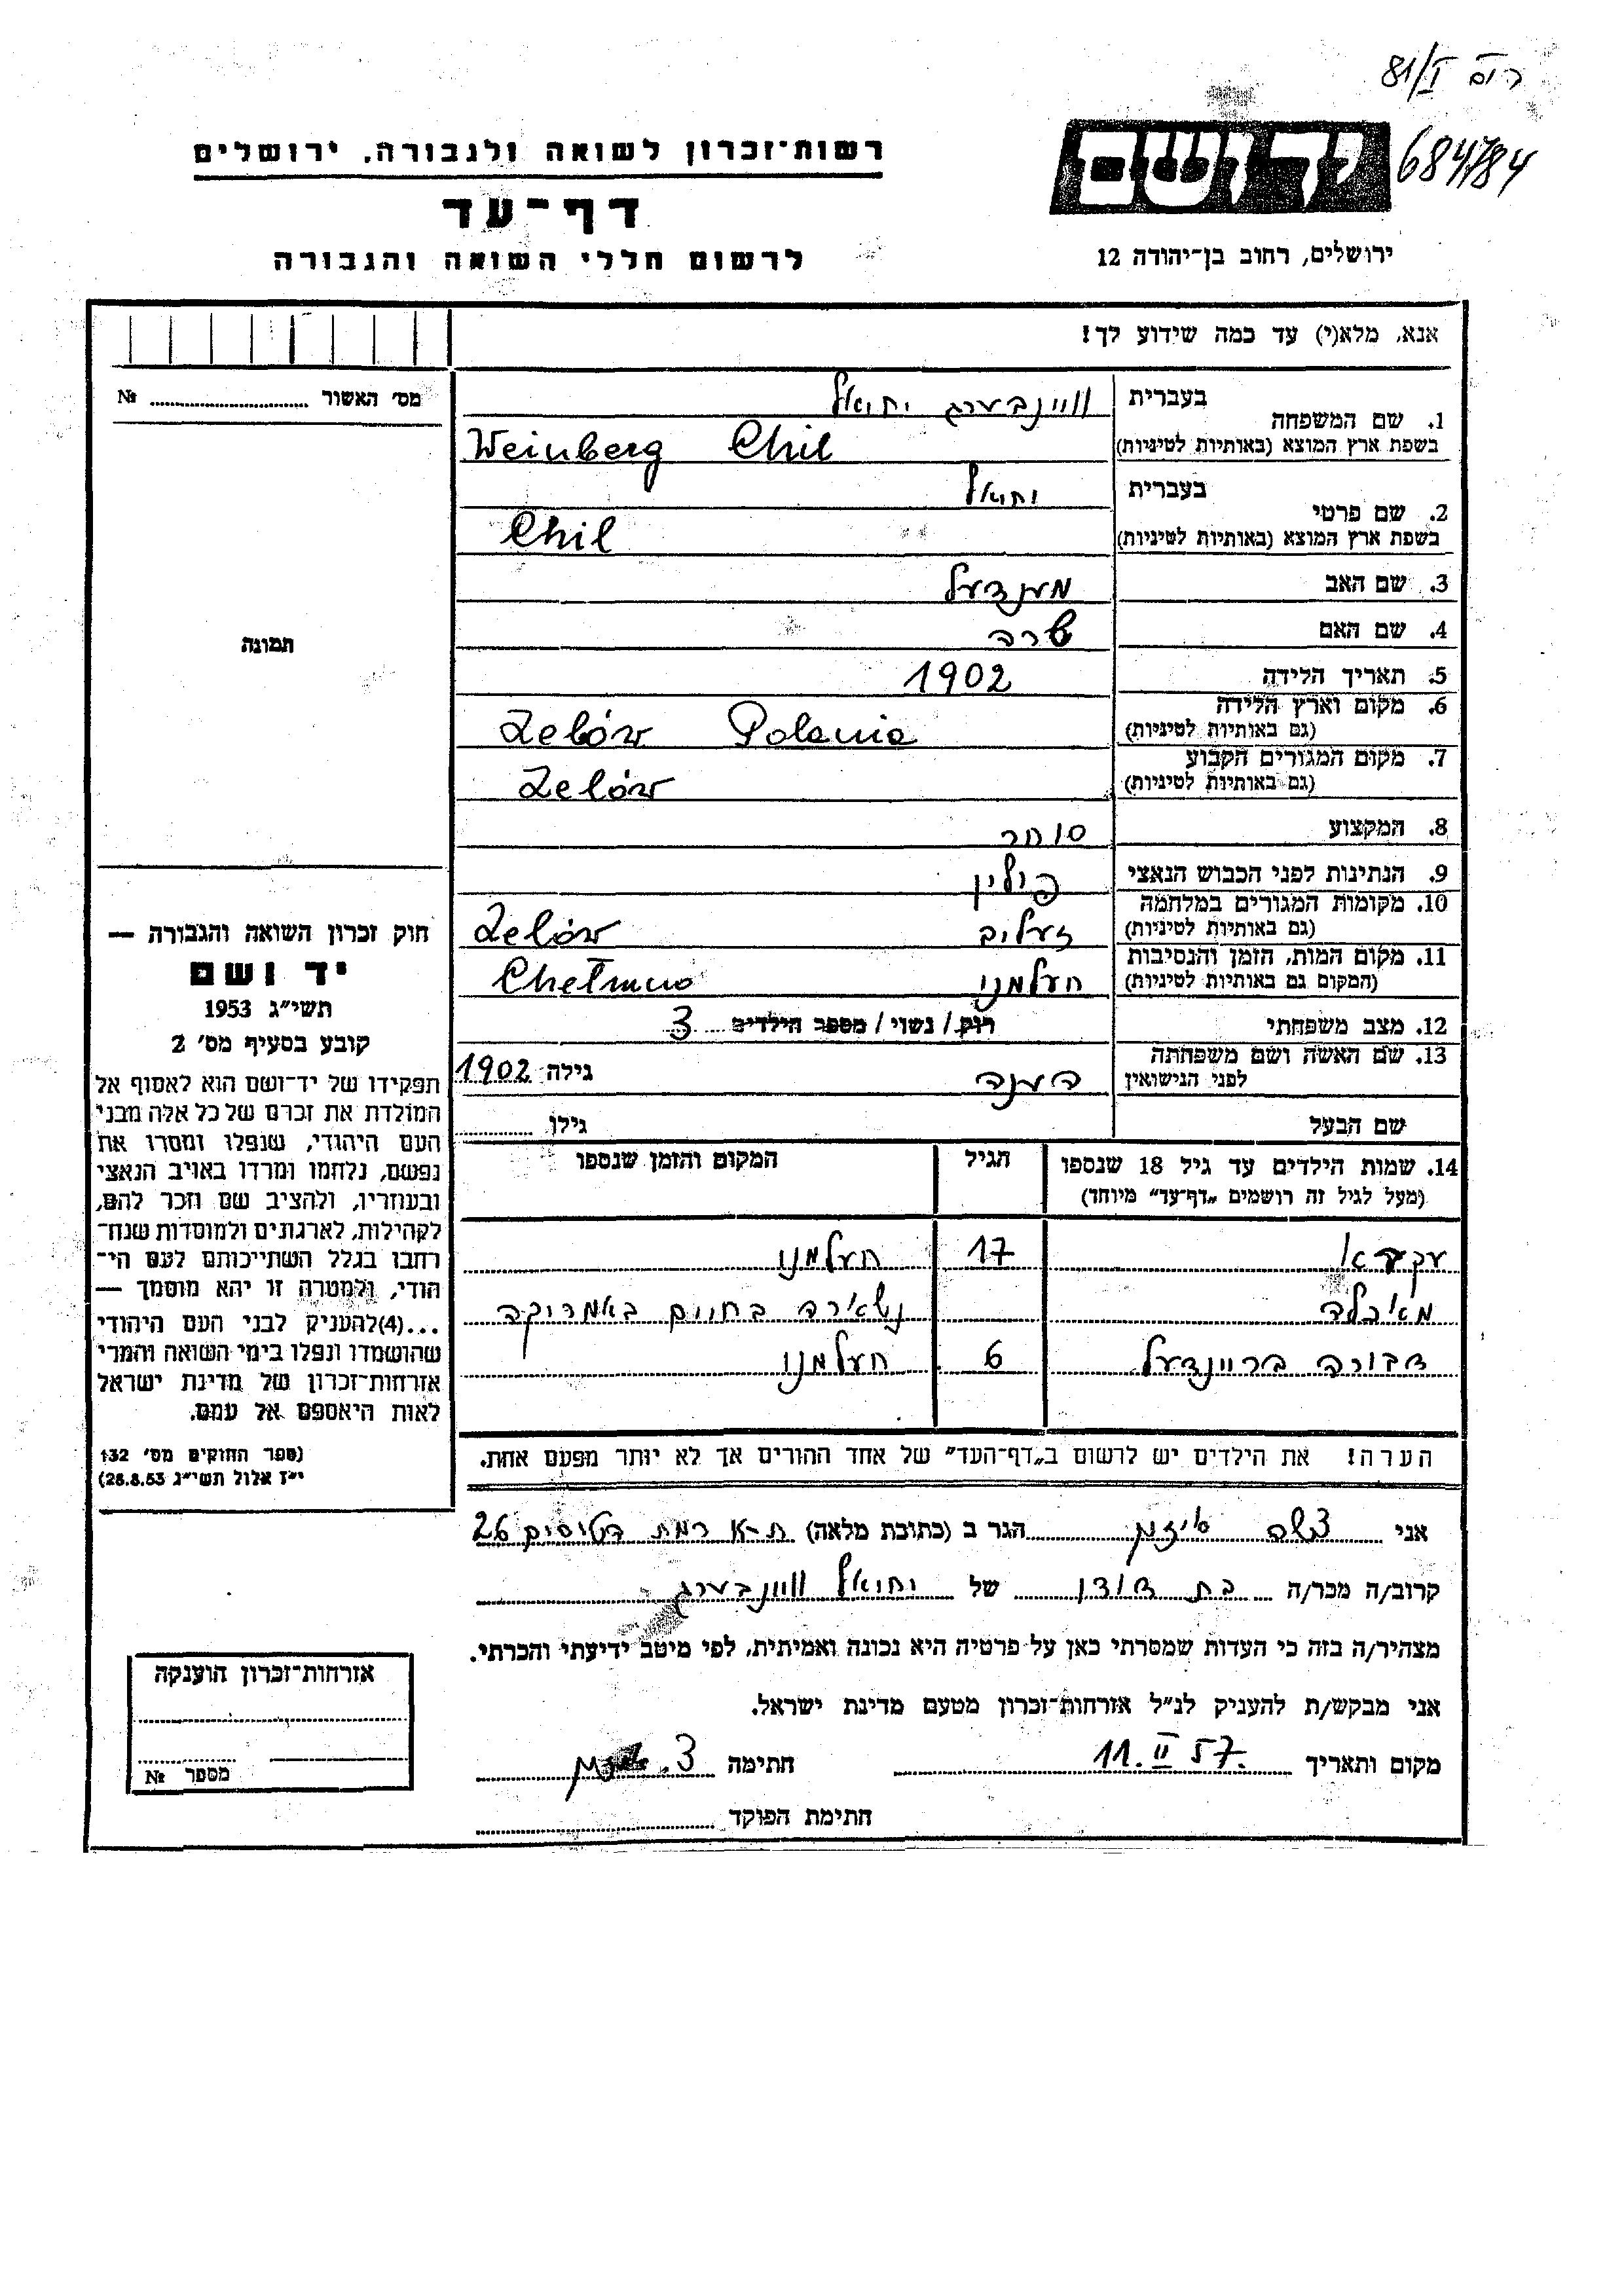 81/I
684784
יד ושם
ירושלים, רחוב בן־יהודה 12
רשות־זכרון לשואה ולגבורה, ירושלים
דף־עד
לרשום חללי השואה והגבורה
אנא, מלא(י) עד כמה שידוע לך!
1. שם המשפחה בעברית וויינבערג יחיאל
בשפת ארץ המוצא (באותיות לטיניות) Weinberg Chil
2. שם פרטי בעברית יחיאל
בשפת ארץ המוצא (באותיות לטיניות) Chil
3. שם האב מענדעל
4. שם האם שרה
5. תאריך הלידה 1902
6. מקום וארץ הלידה
(גם באותיות לטיניות) Zelów Polania
7. מקום המגורים הקבוע
(גם באותיות לטיניות) Zelów
8. המקצוע סוחר
9. הנתינות לפני הכבוש הנאצי פולין
10. מקומות המגורים במלחמה
(גם באותיות לטיניות) זעלוב Zelów
11. מקום המות, הזמן והנסיבות
(המקום גם באותיות לטיניות) חעלמנו Chełmno
12. מצב משפחתי רוק / נשוי / מספר הילדים 3
13. שם האשה ושם משפחתה
לפני הנישואין גילה 1902
שם הבעל גילו
14. שמות הילדים עד גיל 18 שנספו הגיל המקום והזמן שנספו
(מעל לגיל זה רושמים „דף־עד״ מיוחד)
17 חעלמנו
נשארה בחיים באמריקה
דבורה בריינדעל 6 חעלמנו
הערה! את הילדים יש לרשום ב„דף־העד״ של אחד ההורים אך לא יותר מפעם אחת.
אני הגר ב (כתובת מלאה) ת-א רמת הטייסים 26
קרוב/ה מכר/ה בת דודן של יחיאל וויינבערג
מצהיר/ה בזה כי העדות שמסרתי כאן על פרטיה היא נכונה ואמיתית, לפי מיטב ידיעתי והכרתי.
אני מבקש/ת להעניק לנ״ל אזרחות־זכרון מטעם מדינת ישראל.
מקום ותאריך 11. II 57. חתימה
חתימת הפוקד
מס׳ האשור №
תמונה
חוק זכרון השואה והגבורה —
יד ושם
תשי״ג 1953
קובע בסעיף מס׳ 2
תפקידו של יד־ושם הוא לאסוף אל
המולדת את זכרם של כל אלה מבני
העם היהודי, שנפלו ומסרו את
נפשם, נלחמו ומרדו באויב הנאצי
ובעוזריו, ולהציב שם וזכר להם,
לקהילות, לארגונים ולמוסדות שנח־
רחבו בגלל השתייכותם לעם הי־
הודי, ולמטרה זו יהא מוסמך —
...(4) להעניק לבני העם היהודי
שהושמדו ונפלו בימי השואה והמרי
אזרחות־זכרון של מדינת ישראל
לאות היאספם אל עמם.
(ספר החוקים מס׳ 132
י״ז אלול תשי״ג 28.8.53)
אזרחות־זכרון הוענקה
מספר №